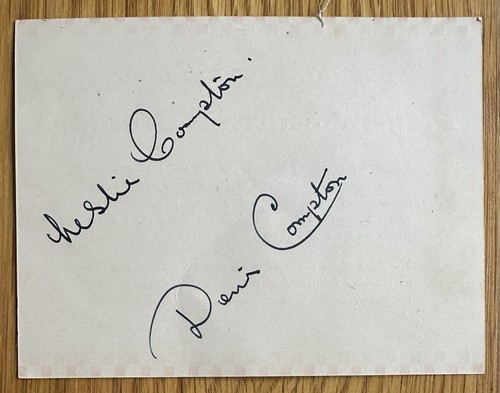 Leslie Compton.
Denis Compton